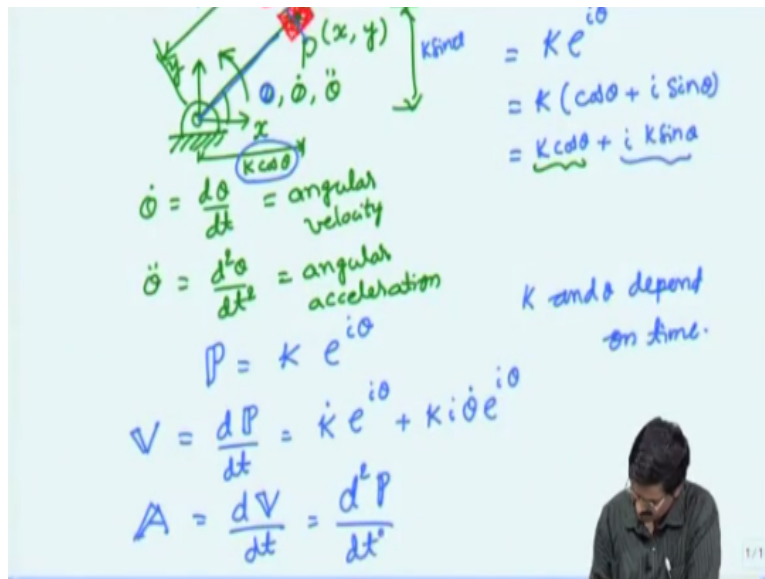 p(x, y)
y
θ, θ̇, θ̈
x
k cosθ
k sinθ
= k e^{iθ}
= k (cosθ + i sinθ)
= k cosθ + i k sinθ
θ̇ = dθ/dt = angular velocity
θ̈ = d²θ/dt² = angular acceleration
k and θ depend
on time.
ℙ = k e^{iθ}
𝕍 = dℙ/dt = k̇ e^{iθ} + k i θ̇ e^{iθ}
𝔸 = d𝕍/dt = d²ℙ/dt²
1/1